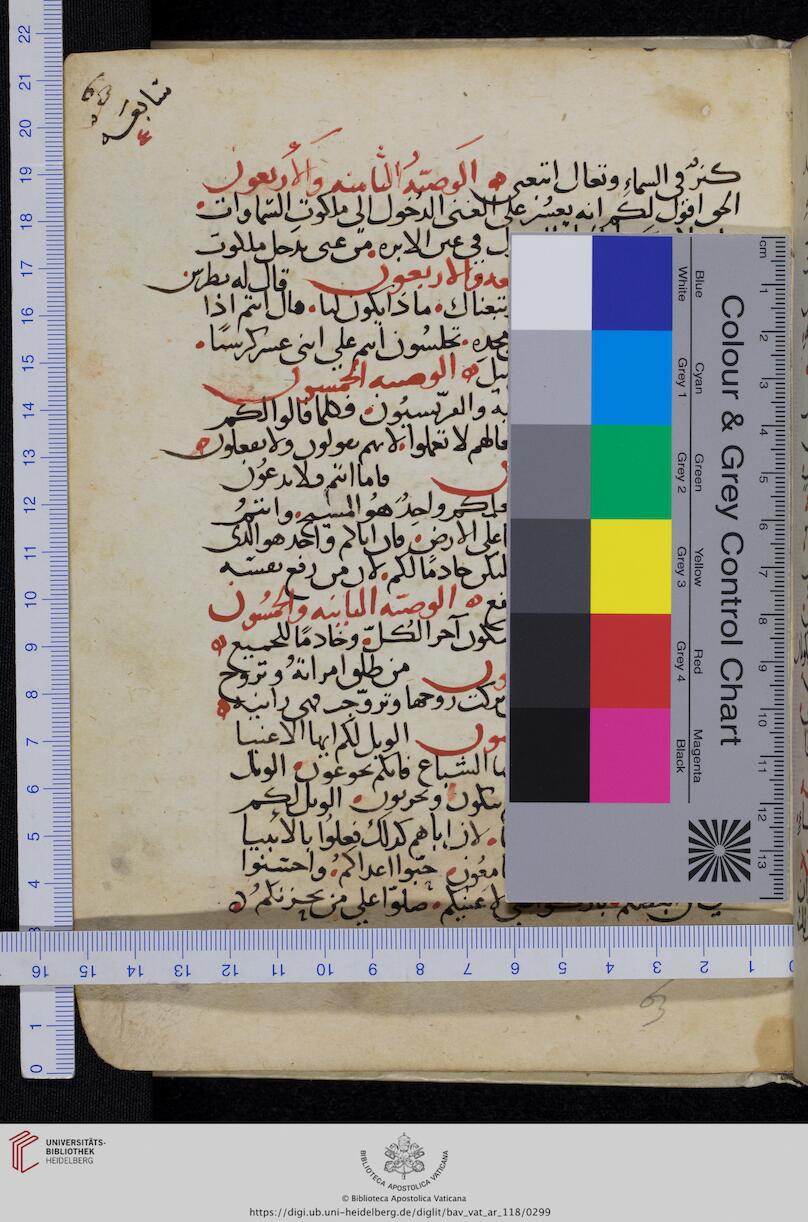 سابعة
63
كنز في السماء وتعال اتبعني الوصية الثامنه والأربعون
الحق اقول لكم انه يعسر على الغنى الدخول الى ملكوت السماوات
في عين الابره من غنى يدخل ملكوت
والاربعون قال له بطرس
تبعناك ماذا يكون لنا قال انتم اذا
مجده تجلسون انتم على اثنى عشر كرسيا
الوصيه الخمسون
والفريسيون فكلما قالوا لكم
لا تعملوا لانهم يقولون ولا يفعلون
فاما انتم ولا تدعون
واحد هو المسيح وانتم
على الارض فان اباكم واحد هو الذى
فليكن خادما لكم لان من رفع نفسه
الوصيه الثانيه والخمسون
آخر الكل وخادما للجميع
من طلق امراته وتزوج
تركت زوجها وتزوجت فهى زانيه
الويل لكم ايها الاغنيا
الشباع فانكم تجوعون الويل
تبكون وتحزنون الويل لكم
لان اباهم كذلك فعلوا بالأنبيا
حبوا اعداكم واحسنوا
لاعنيكم صلوا على من يحزنكم
63
Colour & Grey Control Chart
Blue Cyan Green Yellow Red Magenta
White Grey 1 Grey 2 Grey 3 Grey 4 Black
cm 1 2 3 4 5 6 7 8 9 10 11 12 13
22
21
20
19
18
17
16
15
14
13
12
11
10
9
8
7
6
5
4
3
1
0
16 15 14 13 12 11 10 9 8 7 6 5 4 3 2 1 0
UNIVERSITÄTS-
BIBLIOTHEK
HEIDELBERG
BIBLIOTECA APOSTOLICA VATICANA
© Biblioteca Apostolica Vaticana
https://digi.ub.uni-heidelberg.de/diglit/bav_vat_ar_118/0299